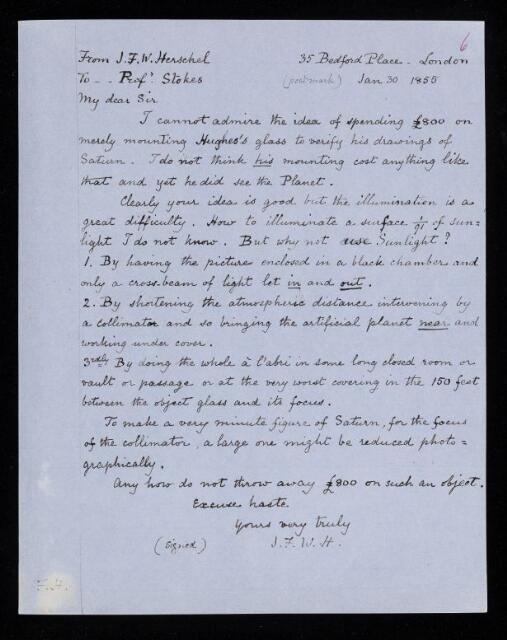 6
From J.F.W. Herschel 35 Bedford Place - London
To -- Profr. Stokes (postmark) Jan 30 1855
My dear Sir
I cannot admire the idea of spending £800 on
merely mounting Hughes's glass to verify his drawings of
Saturn. I do not think his mounting cost anything like
that and yet he did see the Planet.
Clearly your idea is good but the illumination is a
great difficulty. How to illuminate a surface 1/91 of sun=
light I do not know. But why not use Sunlight?
1. By having the picture enclosed in a black chamber and
only a cross-beam of light let in and out.
2. By shortening the atmospheric distance intervening by
a collimator and so bringing the artificial planet near and
working under cover.
3rdly By doing the whole à l'abri in some long closed room or
vault or passage or at the very worst covering in the 150 feet
between the object glass and its focus.
To make a very minute figure of Saturn, for the focus
of the collimator, a large one might be reduced photo=
graphically.
Any how do not throw away £800 on such an object.
Excuse haste.
Yours very truly
(signed) J.F.W.H.